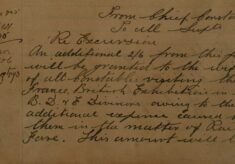 From Chief Const
To all Supts
Re Excursion
An additional 2/6 from this
will be granted to the
of all Constables visiting the
Franco British Exhibition in
B. D. & E Divisions owing to the
additional expense caused
them in the matter of Rai
Fare. This amount will